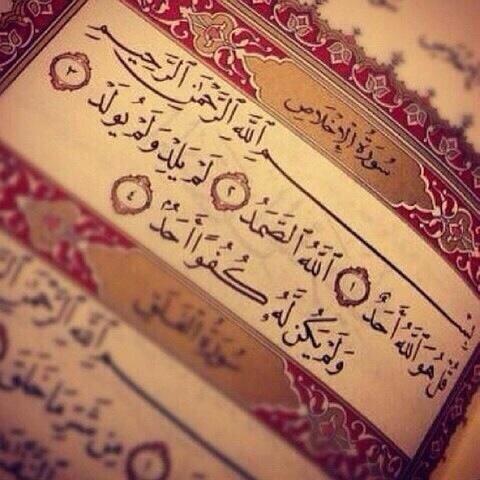 سُورَةُ الإِخْلَاصِ
بِسْمِ ٱللَّهِ ٱلرَّحْمَٰنِ ٱلرَّحِيمِ
قُلْ هُوَ ٱللَّهُ أَحَدٌ ١ ٱللَّهُ ٱلصَّمَدُ ٢ لَمْ يَلِدْ وَلَمْ يُولَدْ ٣
وَلَمْ يَكُن لَّهُۥ كُفُوًا أَحَدٌ ٤
سُورَةُ الْفَلَقِ
ٱللَّهِ ٱلرَّحْمَٰنِ
مِن شَرِّ مَا خَلَقَ